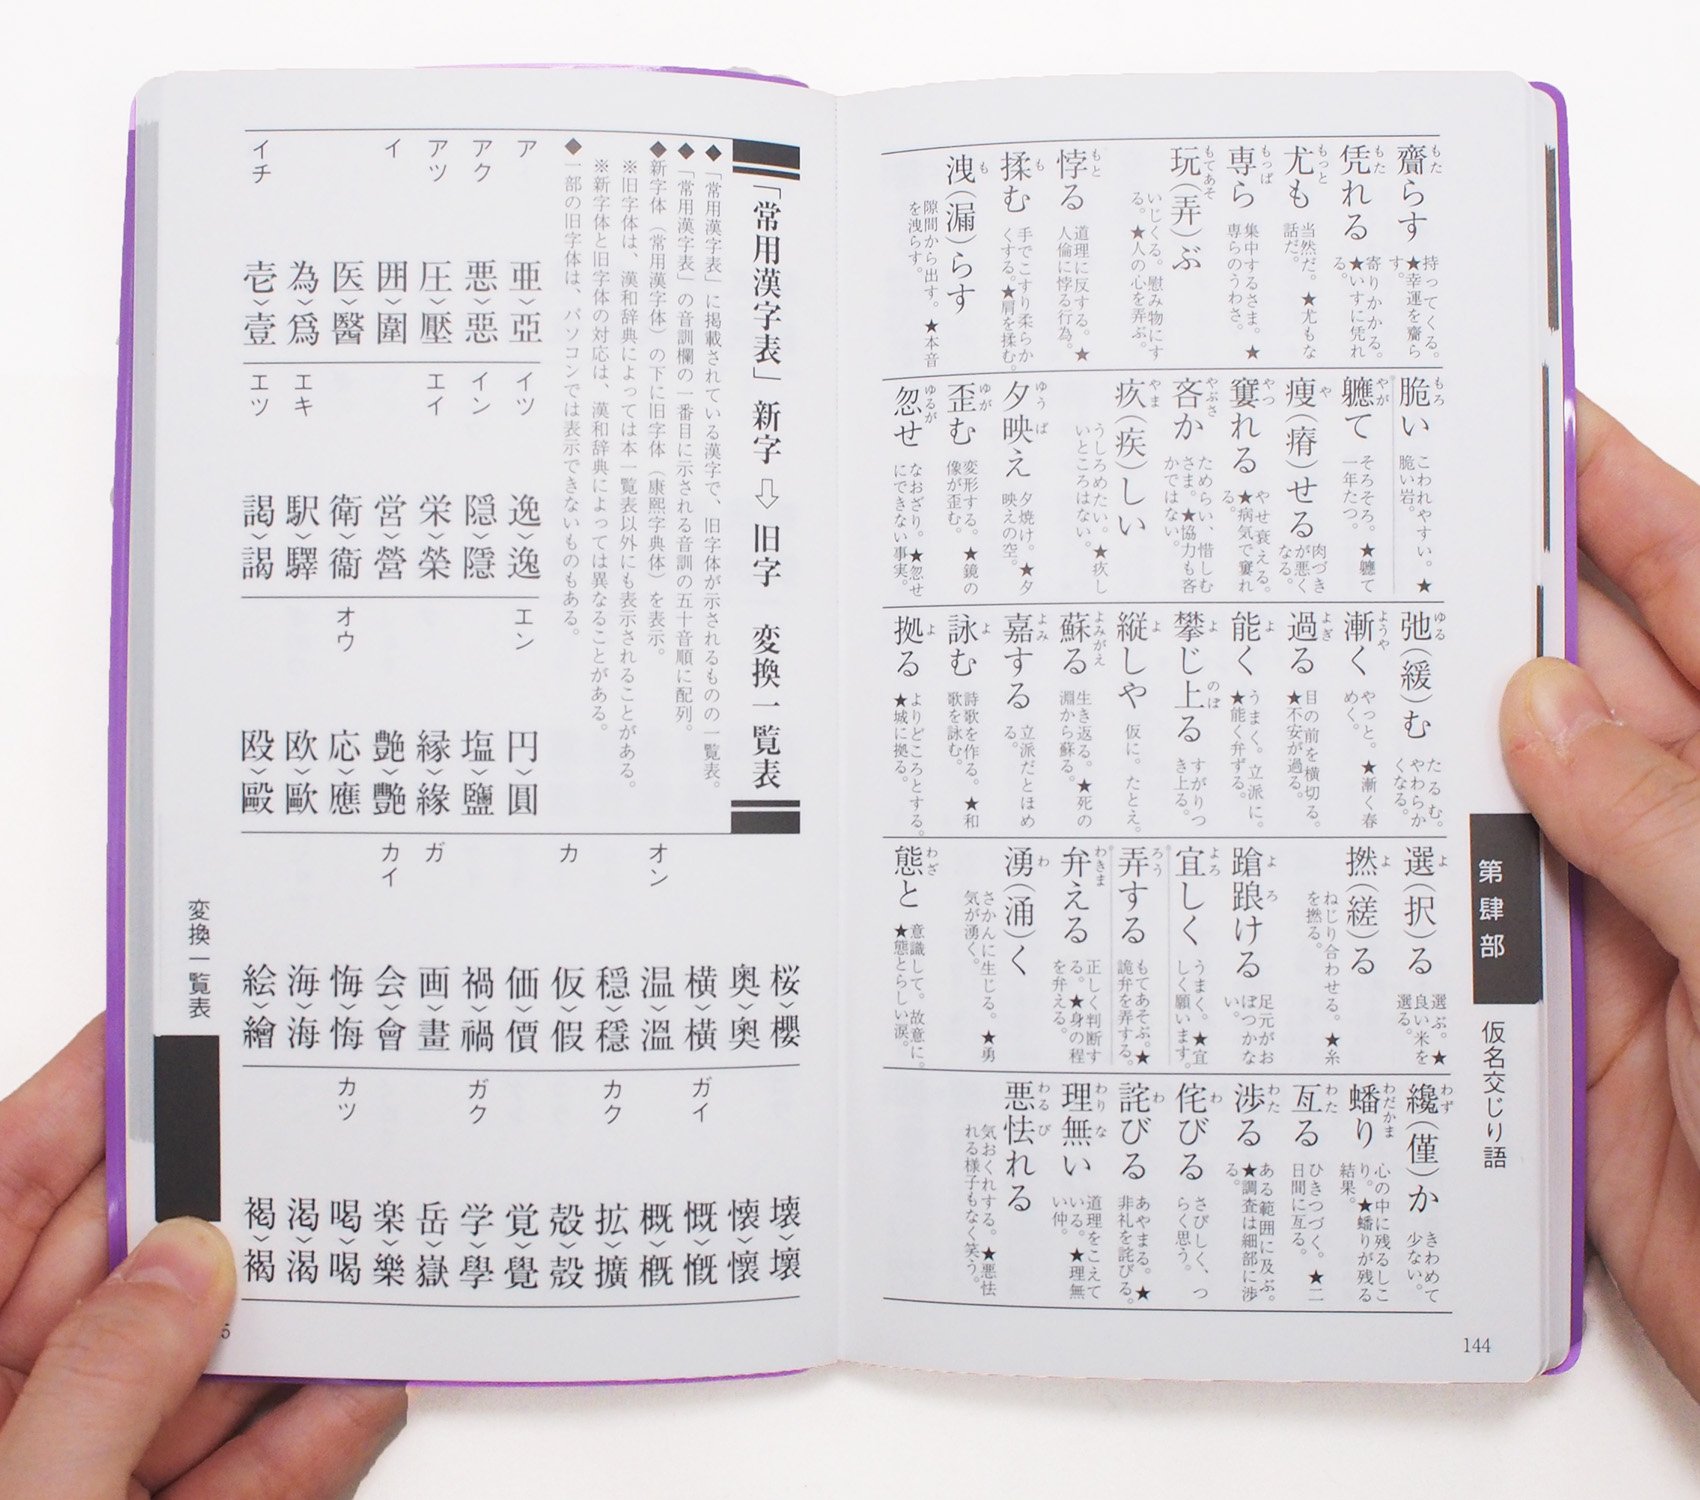 第肆部
仮名交じり語
齎らす 持ってくる。★幸運を齎らす。
凭れる 寄りかかる。★いすに凭れる。
尤も 当然だ。★尤もな話だ。
専ら 集中するさま。★専らのうわさ。
玩(弄)ぶ いじくる。慰み物にする。★人の心を弄ぶ。
悖る 道理に反する。★人倫に悖る行為。
揉む 手でこすり柔らかくする。★肩を揉む。
洩(漏)らす 隙間から出す。★本音を洩らす。
脆い こわれやすい。★脆い岩。
軈て そろそろ。★軈て一年たつ。
痩(瘠)せる 肉づきが悪くなる。
窶れる やせ衰える。★病気で窶れる。
吝か ためらい、惜しむさま。★協力も吝かではない。
疚(疾)しい うしろめたい。★疚しいところはない。
夕映え 夕焼け。★夕映えの空。
歪む 変形する。★鏡の像が歪む。
忽せ なおざり。★忽せにできない事実。
弛(緩)む たるむ。やわらかくなる。
漸く やっと。★漸く春めく。
過る 目の前を横切る。★不安が過る。
能く うまく。立派に。★能く弁ずる。
攀じ上る すがりつき上る。
縦しや 仮に。たとえ。
蘇る 生き返る。★死の淵から蘇る。
嘉する 立派だとほめる。
詠む 詩歌を作る。★和歌を詠む。
拠る よりどころとする。★城に拠る。
選(択)る 選ぶ。★良い米を選る。
撚(縒)る ねじり合わせる。★糸を撚る。
蹌踉ける 足元がおぼつかない。
宜しく うまく。★宜しく願います。
弄する もてあそぶ。★詭弁を弄する。
弁える 正しく判断する。★身の程を弁える。
湧(涌)く さかんに生じる。★勇気が湧く。
態と 意識して。故意に。★態とらしい涙。
纔(僅)か きわめて少ない。
蟠り 心の中に残るしこり。★蟠りが残る結果。
亙る ひきつづく。★二日間に亙る。
渉る ある範囲に及ぶ。★調査は細部に渉る。
侘びる さびしく、つらく思う。
詫びる あやまる。★非礼を詫びる。
理無い 道理をこえている。★理無い仲。
悪怯れる 気おくれする。★悪怯れる様子もなく笑う。
144
「常用漢字表」新字⇨旧字 変換一覧表
◆「常用漢字表」に掲載されている漢字で、旧字体が示されるものの一覧表。
◆「常用漢字表」の音訓欄の一番目に示される音訓の五十音順に配列。
◆新字体（常用漢字体）の下に旧字体（康熙字典体）を表示。
※旧字体は、漢和辞典によっては本一覧表以外にも表示されることがある。
※新字体と旧字体の対応は、漢和辞典によっては異なることがある。
◆一部の旧字体は、パソコンでは表示できないものもある。
ア 亜>亞
アク 悪>惡
アツ 圧>壓
イ 囲>圍
医>醫
為>爲
イチ 壱>壹
イツ 逸>逸
イン 隠>隱
エイ 栄>榮
営>營
衛>衞
エキ 駅>驛
エツ 謁>謁
エン 円>圓
塩>鹽
縁>緣
艶>艷
オウ 応>應
欧>歐
殴>毆
桜>櫻
奥>奧
横>橫
オン 温>溫
穏>穩
カ 仮>假
価>價
禍>禍
ガ 画>畫
カイ 会>會
悔>悔
海>海
絵>繪
壊>壞
懐>懷
ガイ 慨>慨
概>槪
カク 拡>擴
殻>殼
覚>覺
ガク 学>學
岳>嶽
楽>樂
カツ 喝>喝
渇>渴
褐>褐
変換一覧表